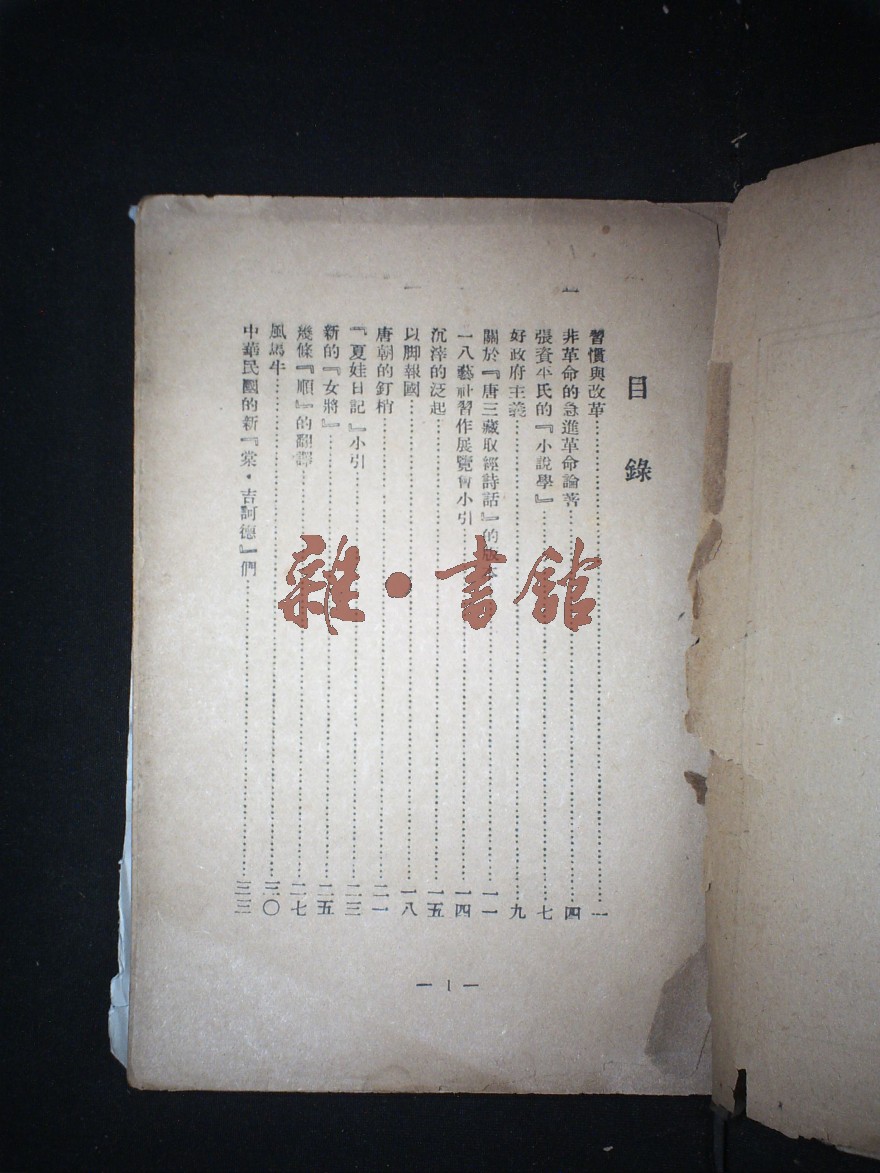 目錄
習慣與改革……一
非革命的急進革命論著……四
張資平氏的『小說學』……七
好政府主義……九
關於『唐三藏取經詩話』的版本……一一
一八藝社習作展覽會小引……一四
沉滓的泛起……一五
以脚報國……一八
唐朝的釘梢……二一
『夏娃日記』小引……二三
新的『女將』……二五
幾條『順』的翻譯……二七
風馬牛……三〇
中華民國的新『棠·吉訶德』們……三三
— 1 —
雜·書館